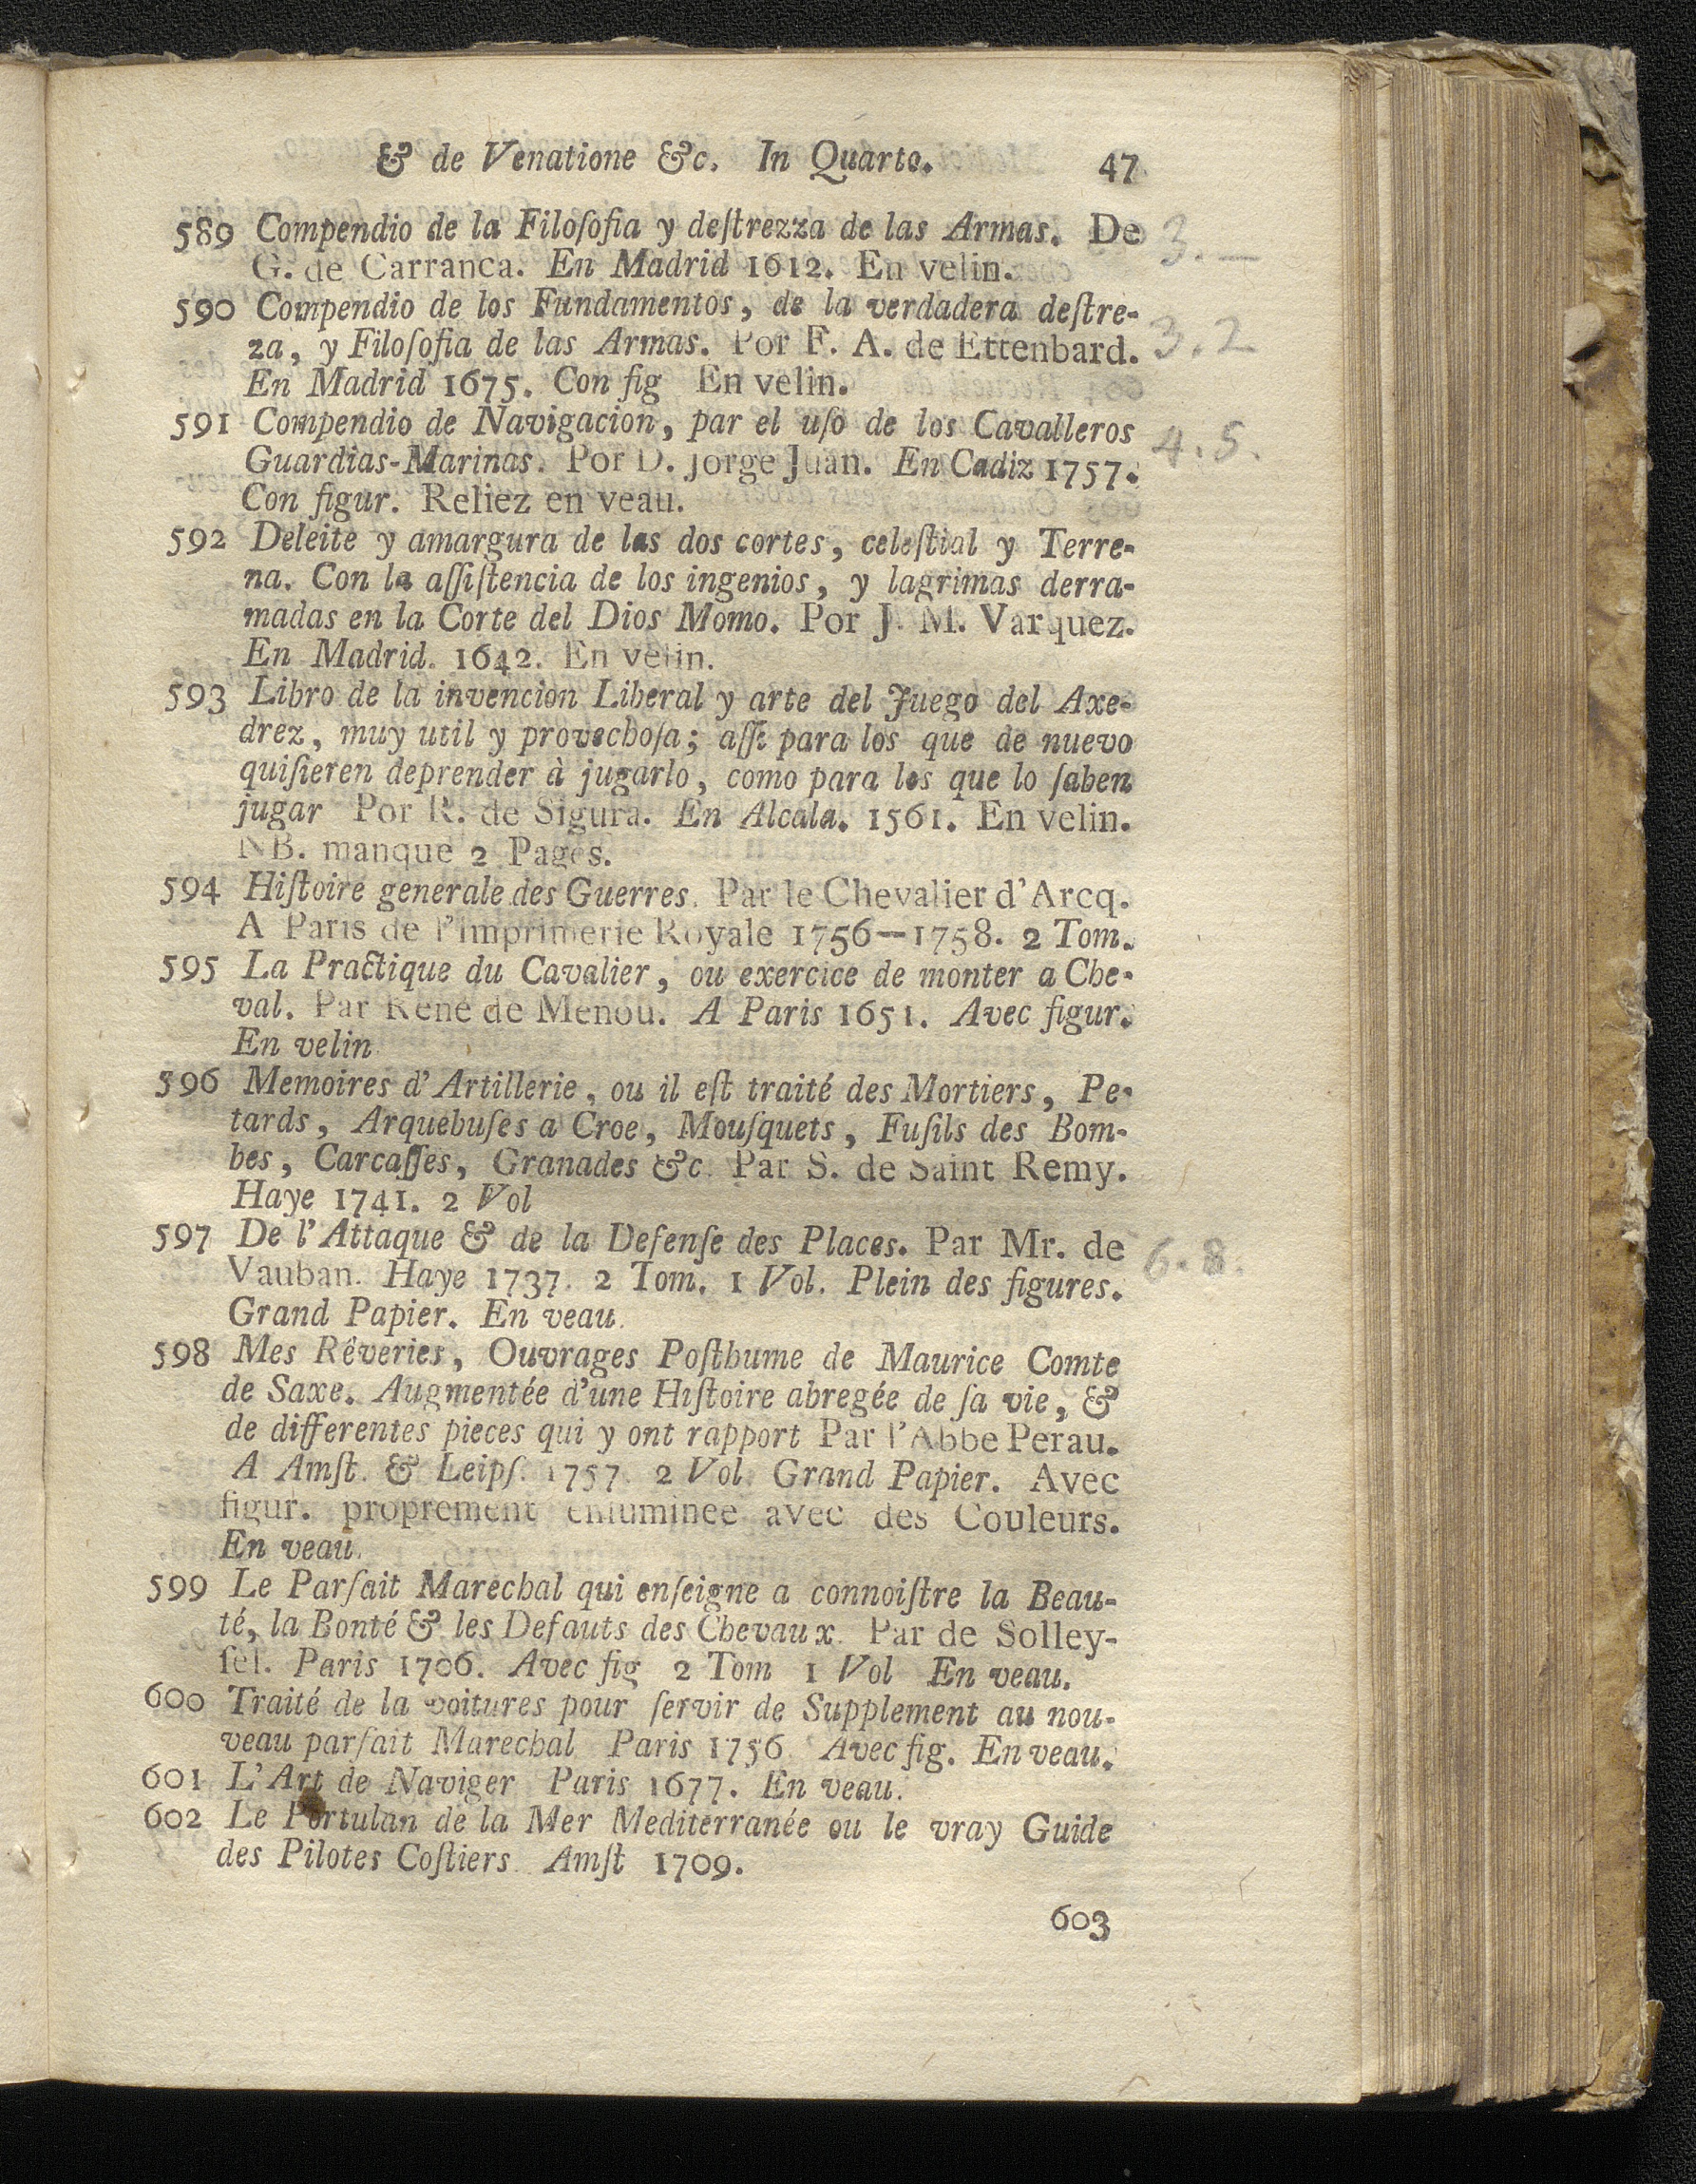 & de Venatione &c. In Quarto. 47
589 Compendio de la Filoſofia y deſtrezza de las Armas. De 3.—
G. de Carranca. En Madrid 1612. En velin.
590 Compendio de los Fundamentos, de la verdadera deſtre-
za, y Filoſofia de las Armas. Por F. A. de Ettenbard. 3.2
En Madrid 1675. Con fig En velin.
591 Compendio de Navigacion, par el uſo de los Cavalleros
Guardias-Marinas. Por D. Jorge Juan. En Cadiz 1757. 4.5.
Con figur. Reliez en veau.
592 Deleite y amargura de las dos cortes, celeſtial y Terre-
na. Con la aſſiſtencia de los ingenios, y lagrimas derra-
madas en la Corte del Dios Momo. Por J. M. Varquez.
En Madrid. 1642. En velin.
593 Libro de la invencion Liberal y arte del Juego del Axe-
drez, muy util y provechoſa; aſſi para los que de nuevo
quiſieren deprender à jugarlo, como para los que lo ſaben
jugar Por R. de Sigura. En Alcala. 1561. En velin.
NB. manque 2 Pages.
594 Hiſtoire generale des Guerres. Par le Chevalier d'Arcq.
A Paris de l'Imprimerie Royale 1756—1758. 2 Tom.
595 La Practique du Cavalier, ou exercice de monter a Che-
val. Par René de Menou. A Paris 1651. Avec figur.
En velin
596 Memoires d'Artillerie, ou il eſt traité des Mortiers, Pe-
tards, Arquebuſes a Croe, Mouſquets, Fuſils des Bom-
bes, Carcaſſes, Granades &c. Par S. de Saint Remy.
Haye 1741. 2 Vol
597 De l'Attaque & de la Defenſe des Places. Par Mr. de
Vauban. Haye 1737. 2 Tom. 1 Vol. Plein des figures. 6.8.
Grand Papier. En veau.
598 Mes Rêveries, Ouvrages Poſthume de Maurice Comte
de Saxe. Augmentée d'une Hiſtoire abregée de ſa vie, &
de differentes pieces qui y ont rapport Par l'Abbe Perau.
A Amſt. & Leipſ. 1757. 2 Vol. Grand Papier. Avec
figur. proprement enluminee avec des Couleurs.
En veau.
599 Le Parfait Marechal qui enſeigne a connoiſtre la Beau-
té, la Bonté & les Defauts des Chevaux. Par de Solley-
ſel. Paris 1706. Avec fig 2 Tom 1 Vol En veau.
600 Traité de la voitures pour ſervir de Supplement au nou-
veau parfait Marechal Paris 1756. Avec fig. En veau.
601 L'Art de Naviger Paris 1677. En veau.
602 Le Portulan de la Mer Mediterranée ou le vray Guide
des Pilotes Coſtiers. Amſt 1709.
603